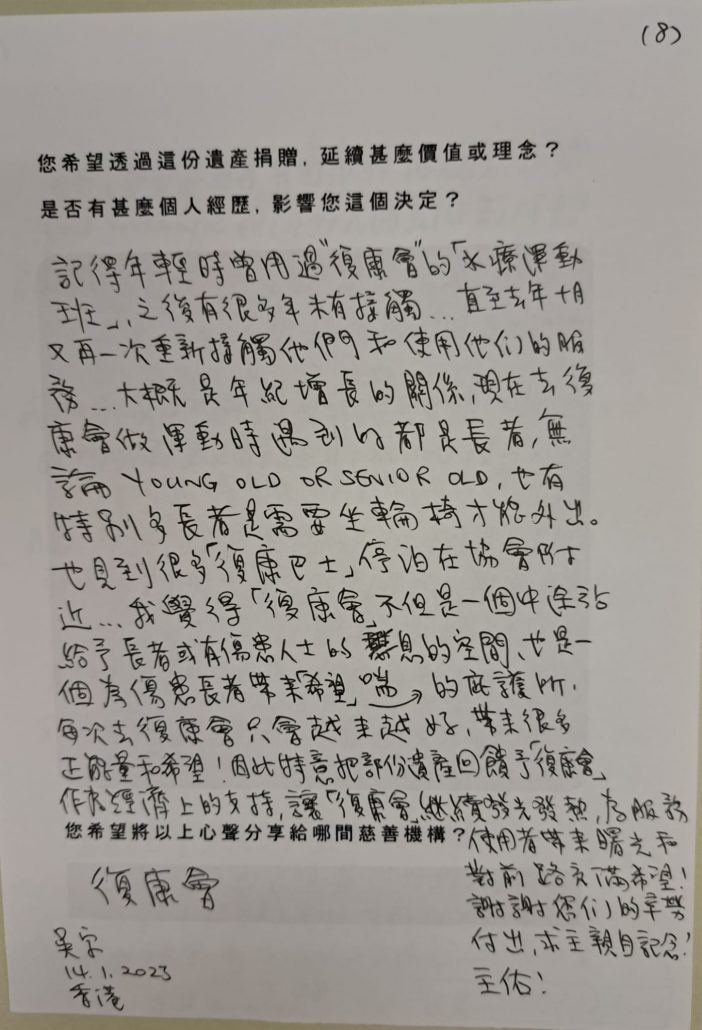 (8)
您希望透過這份遺產捐贈，延續甚麼價值或理念？
是否有甚麼個人經歷，影響您這個決定？
記得年輕時曾用過"復康會"的「水療運動
班」，之後有很多年未有接觸...直至去年十月
又再一次重新接觸他們和使用他们的服
務...大概是年紀增長的關係，現在去復
康會做運動時遇到的都是長者，無
論 YOUNG OLD OR SENIOR OLD，也有
特別多長者是需要坐輪椅才能外出。
也見到很多「復康巴士」停泊在協會附
近...我覺得「復康會」不但是一個中途站
給予長者或有傷患人士的 息的空間、也是一
個為傷患長者帶来「希望」 的庇護所．
每次去復康會只會越来越好，帶来很多
正能量和希望！因此特意把部份遺產回饋予「復康會」
作為經濟上的支持，讓「復康會」継續發光發熱，為服務
使用者帶来曙光和
對前路充滿希望！
謝謝您们的辛勞
付出，求主親自記念！
主佑！
您希望將以上心聲分享給哪間慈善機構？
復康會
14.1.2023
香港